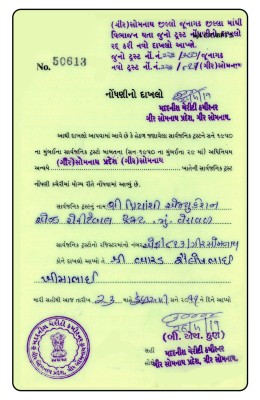 (ગીર)સોમનાથ જીલ્લો જૂનાગઢ જીલ્લા માંથી
વિભાજન થતા જુનો ટ્રસ્ટ નોંધણીનો દાખલો
રદ કરી નવો દાખલો આપ્યો.
જુનો ટ્રસ્ટ નોં.નં. જૂનાગઢ
નવો ટ્રસ્ટ નોં.નં. (ગીર)સોમનાથ
No. 50613
નોંધણીનો દાખલો
મદદનીશ ચેરીટી કમિશનર
ગીર સોમનાથ પ્રદેશ, ગીર સોમનાથ
આથી દાખલો આપવામાં આવે છે કે હેઠળ જણાવેલા સાર્વજનિક ટ્રસ્ટને સને ૧૯૫૦
ના મુંબઈના સાર્વજનિક ટ્રસ્ટ બાબતના (સન ૧૯૫૦ ના મુંબઈના ૨૯ માં) અધિનિયમ
અન્વયે (ગીર)સોમનાથ પ્રદેશ (ગીર)સોમનાથ ખાતેની સાર્વજનિક ટ્રસ્ટ
નોંધણી કચેરીમાં યોગ્ય રીતે નોંધવામાં આવ્યું છે.
સાર્વજનિક ટ્રસ્ટનું નામ શ્રી પ્રિયાંશી એજ્યુકેશન
એન્ડ ચેરીટેબલ ટ્રસ્ટ મું. વેરાવળ
સાર્વજનિક ટ્રસ્ટોના રજિસ્ટરમાંનો નંબર ગીરસોમનાથ
કોને દાખલો આપ્યો તે શ્રી
ખીમાભાઈ
મારી સહીથી આજ તારીખ ૨૩ માહે ફેબ્રુઆરી સને ૨૦૧૭ ને દિને આપ્યો
(બી. એચ. હુણ)
સહી મદદનીશ ચેરીટી કમિશનર
ગીર સોમનાથ પ્રદેશ, ગીર સોમનાથ.
મદદનીશ ચેરીટી કમિશનર
ગીર સોમનાથ પ્રદેશ, ગીર સોમનાથ